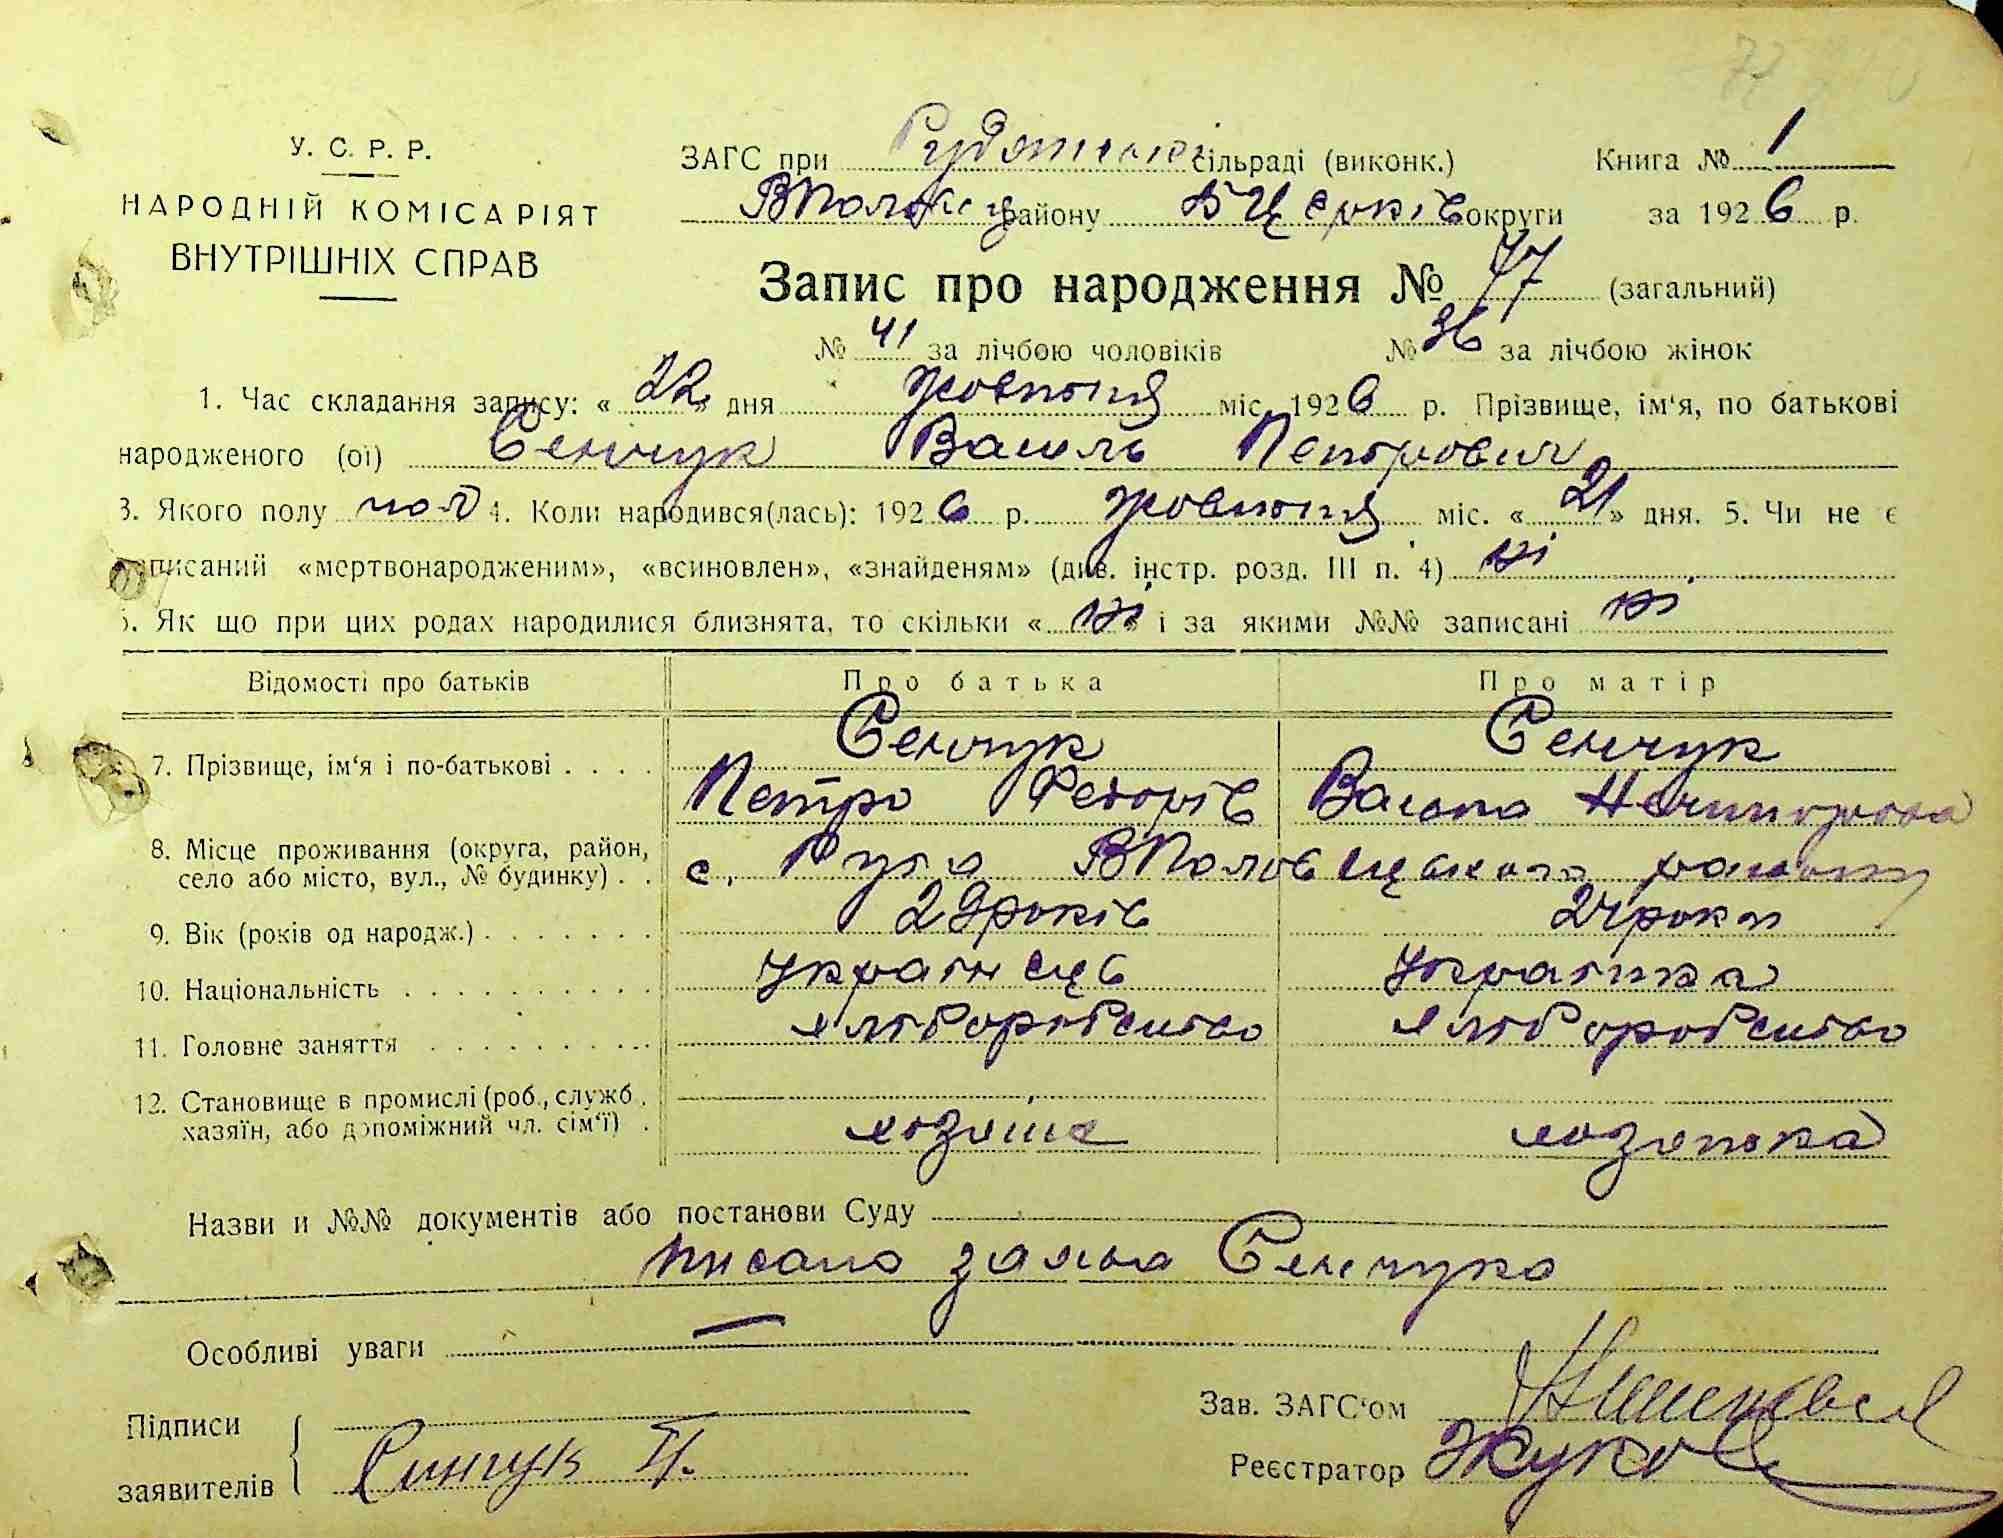 У. С. Р. Р.
НАРОДНІЙ КОМІСАРІЯТ
ВНУТРІШНІХ СПРАВ
ЗАГС при Рудянській сільраді (виконк.) Книга № 1
ВПоловец району БЦерків округи за 1926 р.
Запис про народження № 77 (загальний)
№ 41 за лічбою чоловіків № 36 за лічбою жінок
1. Час складання запису: « 22 » дня жовтня міс. 1926 р. Прізвище, ім'я, по батькові
народженого (ої) Сенчук Василь Петрович
3. Якого полу чол 4. Коли народився(лась): 1926 р. жовтня міс. « 21 » дня. 5. Чи не є
записаний «мертвонародженим», «всиновлен», «знайденям» (див. інстр. розд. III п. 4) ні
6. Як що при цих родах народилися близнята, то скільки « ні » і за якими №№ записані ні
Відомості про батьків Про батька Про матір
7. Прізвище, ім'я і по-батькові . . . . Сенчук Сенчук
Петро Федорів
8. Місце проживання (округа, район, село або місто, вул., № будинку) . . с. Руда ВПоловецького району
9. Вік (років од народж.) . . . . . . . 29 років 24 роки
10. Національність . . . . . . . . . . українець українка
11. Головне заняття . . . . . . . . . . хліборобство хліборобство
12. Становище в промислі (роб., служб.
хазяїн, або допоміжний чл. сім'ї) . хозяїн хозяйка
Назви и №№ документів або постанови Суду
Сенчука
Особливі уваги —
Підписи
заявителів Синчук П.
Зав. ЗАГС'ом
Реєстратор Жуков